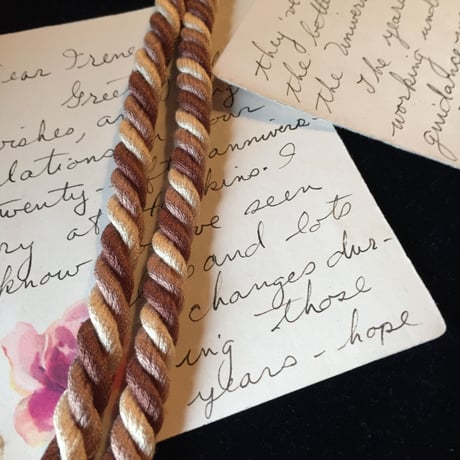 ear Irene
Greet
ishes, an
lations our
wenty- annivers-
ry at kins. I
know 've seen
and lots
changes dur-
ing those
years - hope
they've
the botto
the Univers
The years
working und
guidance